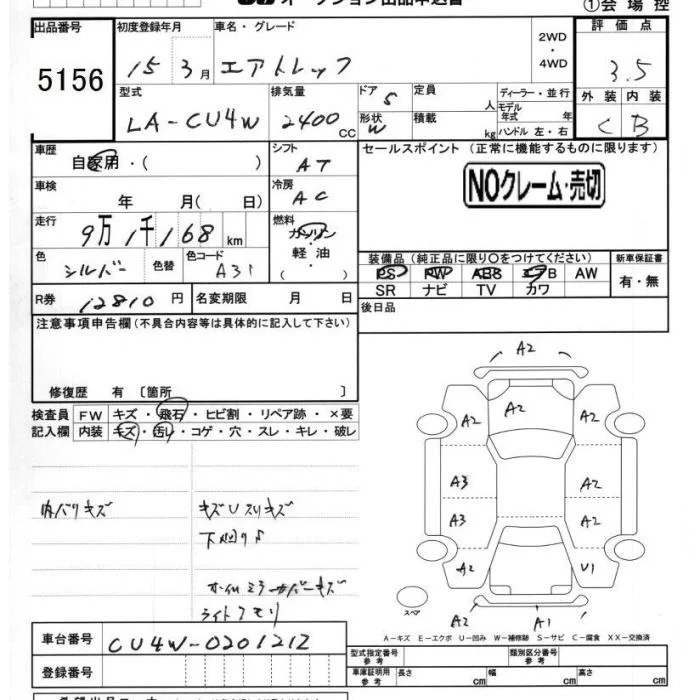 ①会場控
出品番号
5156
初度登録年月
15 3月
車名・グレード
エアトレック
2WD
・
4WD
評価点
3.5
型式
LA-CU4W
排気量
2400 CC
ドア
5
形状
W
定員
人
積載
kg
ディーラー・並行
モデル年式 年
ハンドル 左・右
外装 内装
C B
車歴
自家用・( )
シフト
AT
セールスポイント (正常に機能するものに限ります)
NOクレーム・売切
車検
年 月( 日)
冷房
AC
走行
9万1千168 km
燃料
ガソリン
・
軽油
( )
色
シルバー
色替
色コード
A31
装備品(純正品に限り○をつけてください)
PS PW ABS エアB AW
SR ナビ TV カワ
新車保証書
有・無
R券 12810 円
名変期限 月 日
後日品
注意事項申告欄(不具合内容等は具体的に記入して下さい)
修復歴 有 〔箇所 〕
検査員記入欄
FW キズ・飛石・ヒビ割・リペア跡・×要
内装 キズ・汚レ・コゲ・穴・スレ・キレ・破レ
内バリキズ
キズUスリキズ
下廻りサ
ホイルミラーカバーキズ
ライトクモリ
A2
A2
A2
A2
A3
A2
A3
A2
A2
U1
A2
A1
スペア
A－キズ E－エクボ U－凹み W－補修跡 S－サビ C－腐食 XX－交換済
車台番号
CU4W-0201212
登録番号
型式指定番号
参考
類別区分番号
参考
車庫証明用
参考
長さ cm
幅 cm
高さ cm